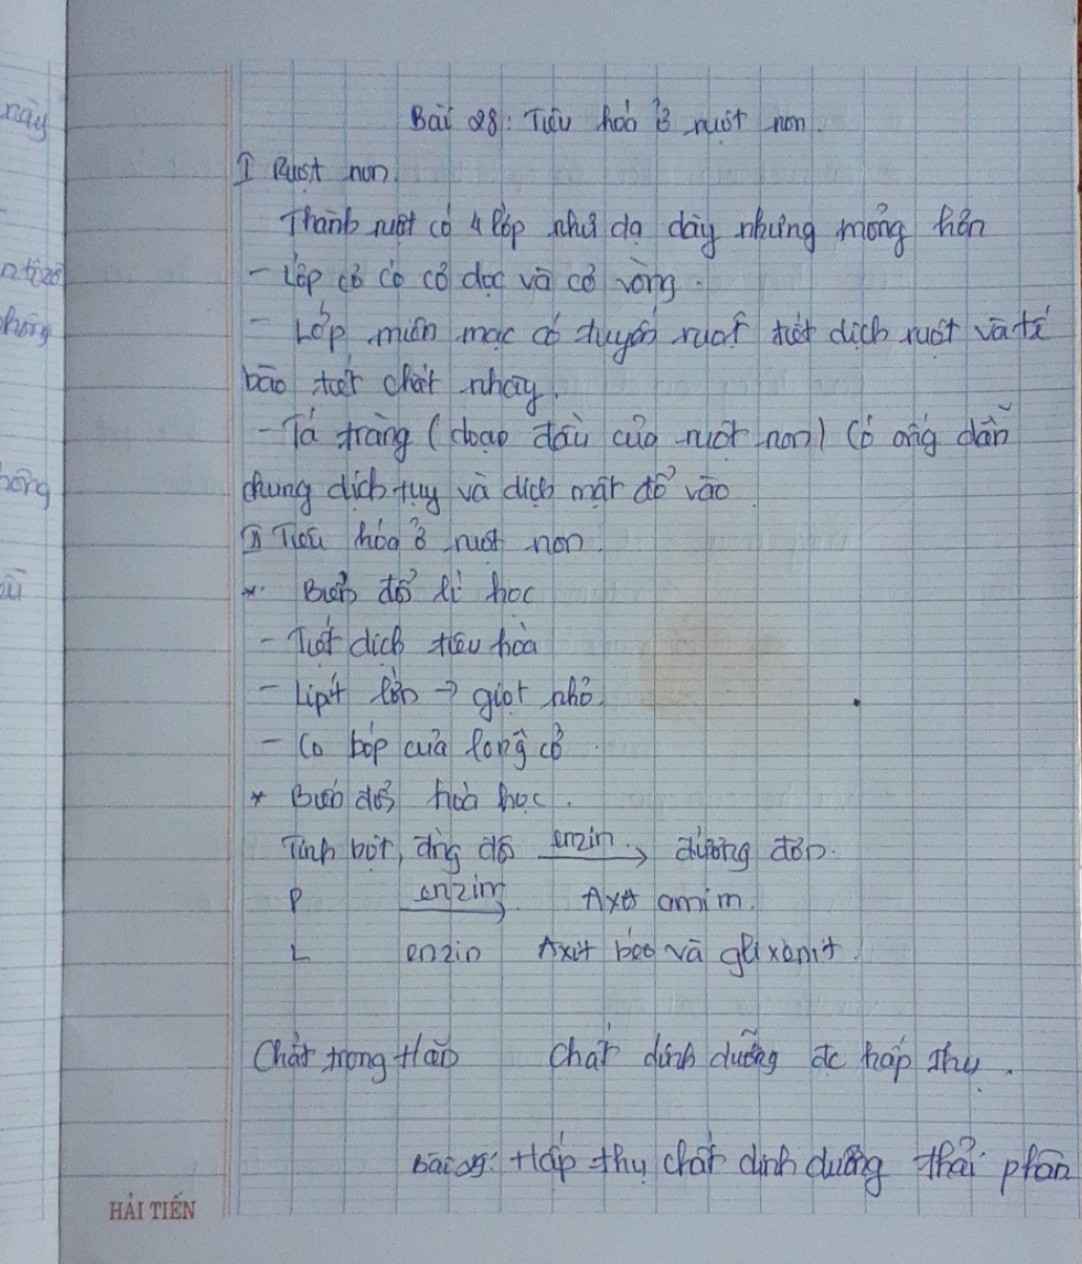 này
Bài 28: Tiêu hóa ở ruột non.
I Ruột non.
Thành ruột có 4 lớp như dạ dày nhưng mỏng hơn
- Lớp cơ có cơ dọc và cơ vòng.
- Lớp niêm mạc có tuyến ruột tiết dịch ruột và tế
bào tiết chất nhày.
- Tá tràng (đoạn đầu của ruột non) có ống dẫn
chung dịch tụy và dịch mật đổ vào
II Tiêu hóa ở ruột non.
*. Biến đổi lí học
- Tiết dịch tiêu hóa
- Lipit lớn → giọt nhỏ.
- Co bóp của lớp cơ.
* Biến đổi hóa học.
Tinh bột, đường đôi enzin → đường đơn.
P enzim → Axit amim.
L enzin Axit béo và glixerit.
Chất trong Chất dinh dưỡng đc hấp thụ.
Bài 29: Hấp thụ chất dinh dưỡng thải phân
HẢI TIẾN